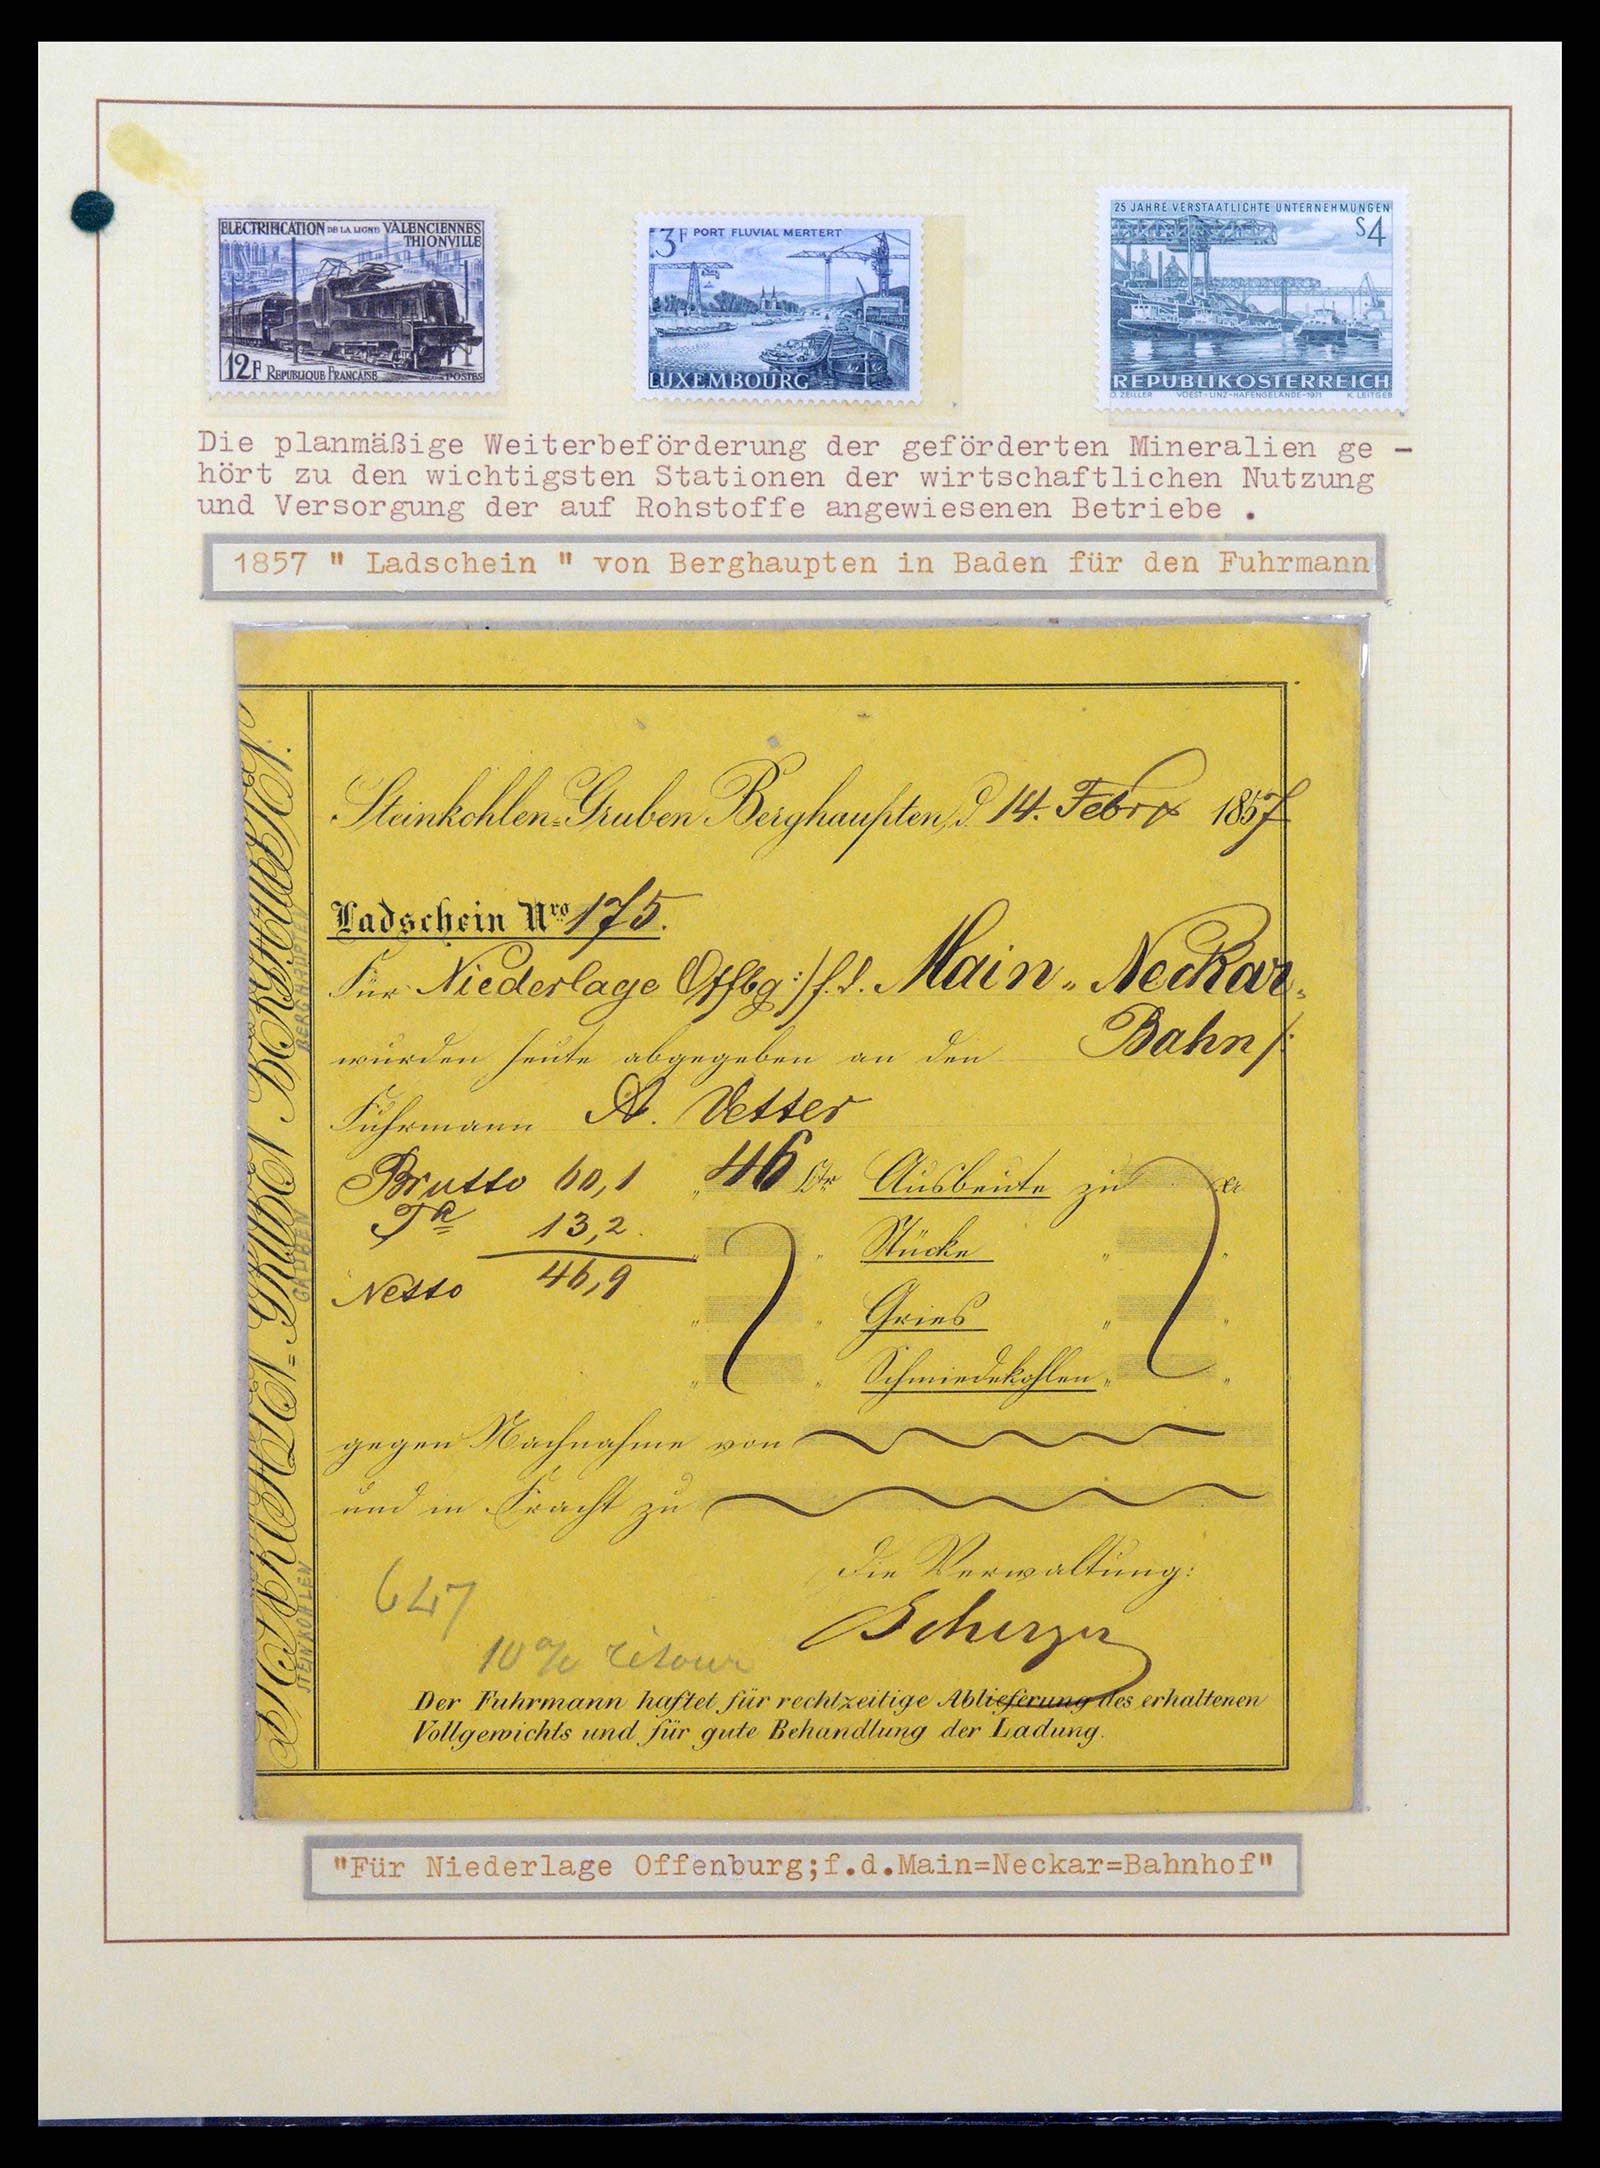 ELECTRIFICATION DE LA LIGNE VALENCIENNES
THIONVILLE
12F REPUBLIQUE FRANÇAISE POSTES
3F PORT FLUVIAL MERTERT
LUXEMBOURG
25 JAHRE VERSTAATLICHTE UNTERNEHMUNGEN
S4
REPUBLIK ÖSTERREICH
O. ZEILLER VOEST-LINZ-HAFENGELÄNDE-1971 K. LEITGEB
Die planmäßige Weiterbeförderung der geförderten Mineralien ge -
hört zu den wichtigsten Stationen der wirtschaftlichen Nutzung
und Versorgung der auf Rohstoffe angewiesenen Betriebe .
1857 " Ladschein " von Berghaupten in Baden für den Fuhrmann
STEINKOHLEN=GRUBEN BERGHAUPTEN.
STEINKOHLEN GRUBEN BERGHAUPTEN
Steinkohlen=Gruben Berghaupten, d. 14. Febr 1857
Ladschein Nro 175.
Für Niederlage Offbg:/f. d. Main=Neckar=
Bahn/:
wurden heute abgegeben an den
Fuhrmann A. Vetter
Brutto 60,1 " 46 Ctr Ausbeute zu xr
Ta 13,2 " " Stücke " "
Netto 46,9 " " Gries " "
" " Schmiedekohlen " "
gegen Nachnahme von
und in Fracht zu
Die Verwaltung:
Scherzer
647
10% retour
Der Fuhrmann haftet für rechtzeitige Ablieferung des erhaltenen
Vollgewichts und für gute Behandlung der Ladung.
"Für Niederlage Offenburg;f.d.Main=Neckar=Bahnhof"